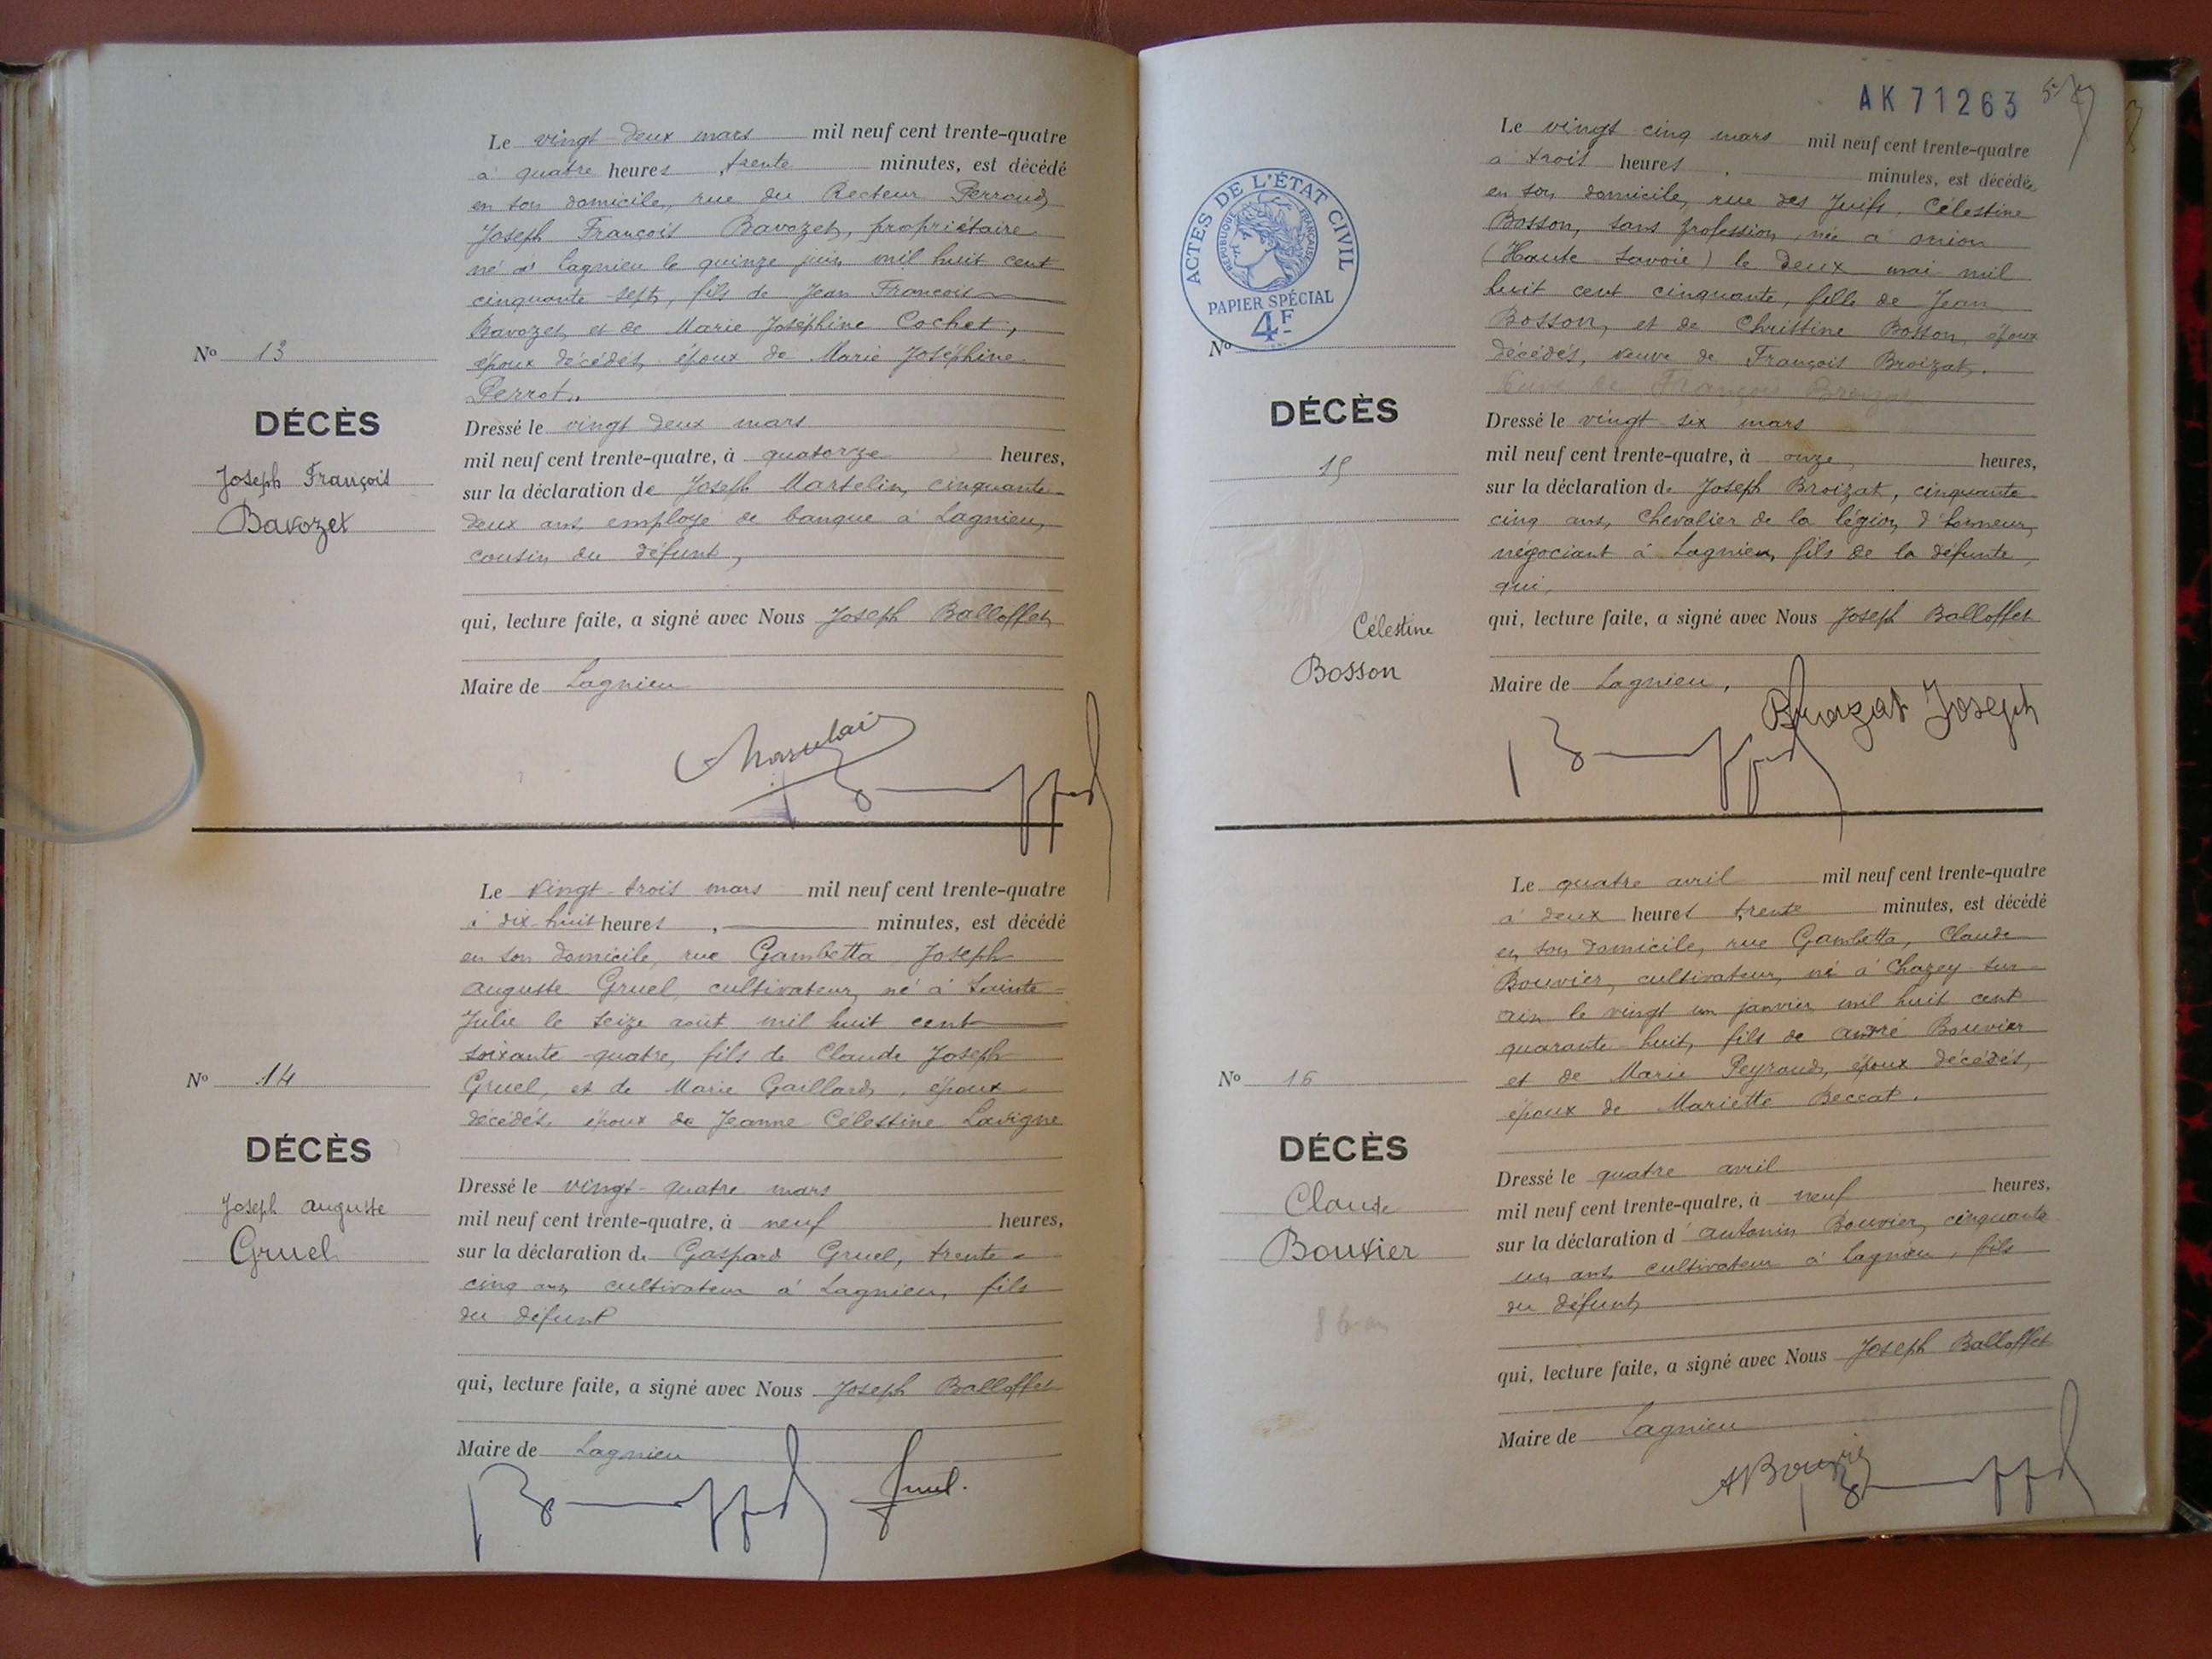 Le vingt deux mars mil neuf cent trente-quatre
à quatre heures, trente minutes, est décédé
en son domicile, rue du Recteur Perroud
Joseph François Bavozet, propriétaire
né à Lagnieu le quinze juin mil huit cent
cinquante-sept, fils de Jean François
Bavozet et de Marie Joséphine Cochet,
époux décédés, époux de Marie Joséphine
Perrot.
Nº 13
DÉCÈS
Joseph François
Bavozet
Dressé le vingt deux mars
mil neuf cent trente-quatre, à quatorze heures,
sur la déclaration de Joseph Martelin, cinquante-
deux ans, employé de banque à Lagnieu,
cousin du défunt,
qui, lecture faite, a signé avec Nous Joseph Balloffet
Maire de Lagnieu
Le vingt-trois mars mil neuf cent trente-quatre
à dix-huit heures, minutes, est décédé
en son domicile, rue Gambetta, Joseph
auguste Gruel, cultivateur, né à Sainte-
Julie le seize août mil huit cent
soixante-quatre, fils de Claude Joseph
Gruel, et de Marie Gaillard, époux
décédés, époux de Jeanne Célestine Lavigne
Nº 14
DÉCÈS
Joseph auguste
Gruel
Dressé le vingt-quatre mars
mil neuf cent trente-quatre, à neuf heures,
sur la déclaration de Gaspard Gruel, trente-
cinq ans, cultivateur à Lagnieu, fils
du défunt
qui, lecture faite, a signé avec Nous Joseph Balloffet
Maire de Lagnieu
Gruel.
AK 71263
ACTES DE L'ÉTAT CIVIL
RÉPUBLIQUE FRANÇAISE
PAPIER SPÉCIAL
4F
Le vingt cinq mars mil neuf cent trente-quatre
à trois heures, minutes, est décédée
en son domicile, rue des Juifs, Célestine
Bosson, sans profession, née à onion
(Haute Savoie) le deux mai mil
huit cent cinquante, fille de Jean
Bosson, et de Christine Bosson, époux
décédés, veuve de François Broizat.
veuve de François Broizat
Nº
DÉCÈS
15
Célestine
Bosson
Dressé le vingt six mars
mil neuf cent trente-quatre, à onze heures,
sur la déclaration de Joseph Broizat, cinquante
cinq ans, Chevalier de la légion d'honneur,
négociant à Lagnieu, fils de la défunte,
qui,
qui, lecture faite, a signé avec Nous Joseph Balloffet
Maire de Lagnieu,
Broizat Joseph
Le quatre avril mil neuf cent trente-quatre
à deux heures trente minutes, est décédé
en son domicile, rue Gambetta, Claude
Bouvier, cultivateur, né à Chazey sur
ain le vingt un janvier mil huit cent
quarante-huit, fils de andré Bouvier
et de Marie Peyraud, époux décédés,
époux de Mariette Beccat.
Nº 16
DÉCÈS
Claude
Bouvier
86 ans
Dressé le quatre avril
mil neuf cent trente-quatre, à neuf heures,
sur la déclaration d'antonin Bouvier, cinquante
un ans, cultivateur à Lagnieu, fils
du défunt,
qui, lecture faite, a signé avec Nous Joseph Balloffet
Maire de Lagnieu
A Bouvier